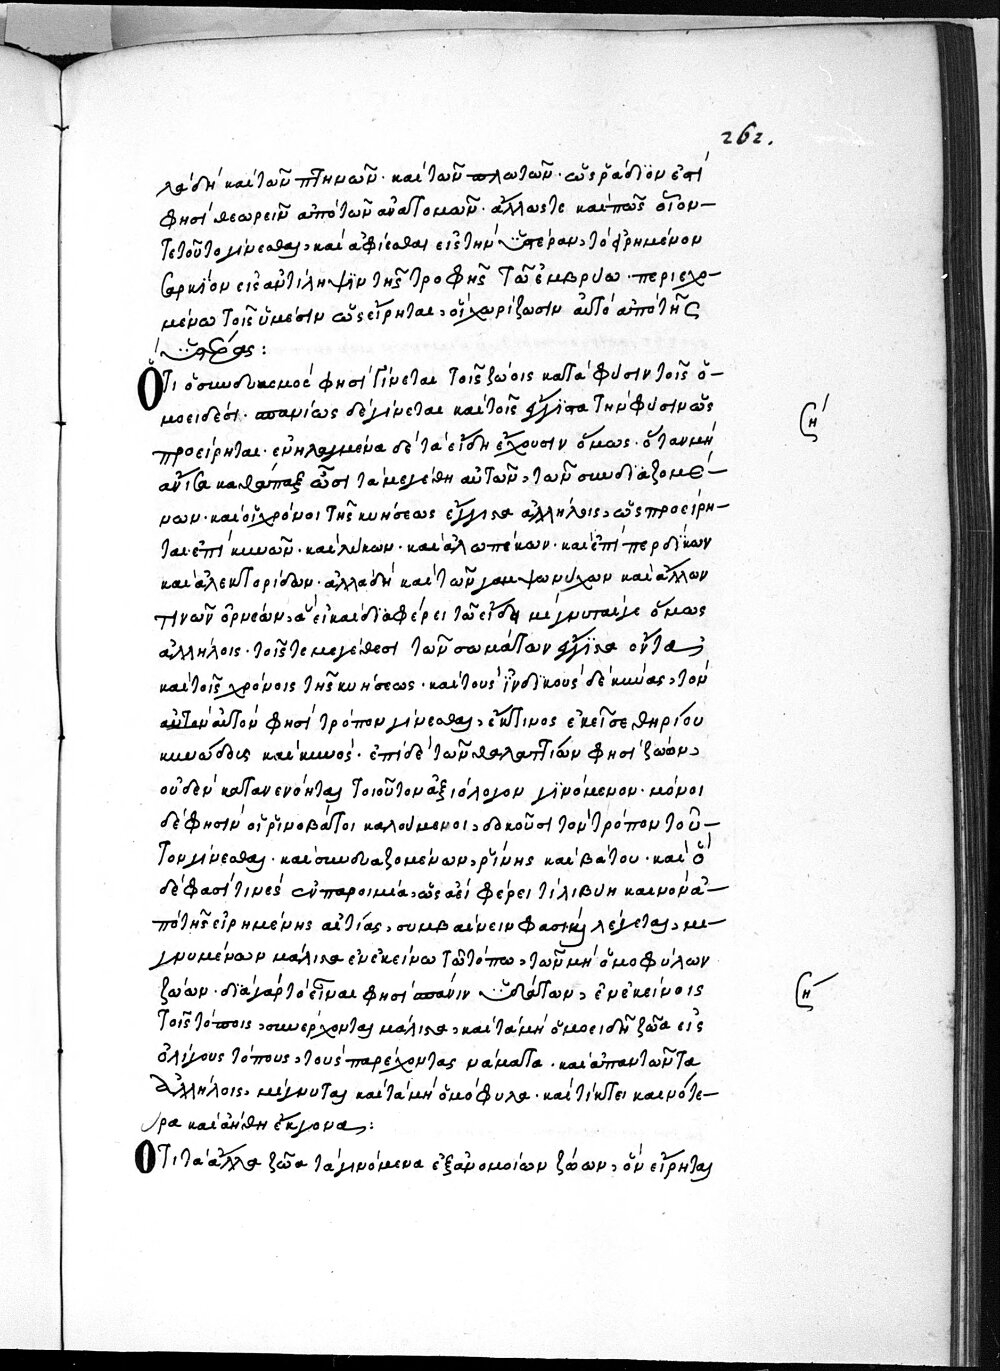 262.
λαδὴ καὶ τῶν πτηνῶν· καὶ τῶν πλωτῶν· ὡς ῥάδϊον ἐστὶ
φησὶ θεωρεῖν ἀπὸ τῶν ἀνατομῶν· ἄλλωστε καὶ πῶς οἷον-
τε τοῦτο γίνεσθαι, καὶ ἀφίεσθαι εἰς τὴν ὑστέραν, τὸ εἰρημένον
σαρκίον εἰς ἀντίληψϊν τῆς τροφῆς τῶ ἐμβρύω· περιεχο-
μένω τοῖς ὑμέσιν ὡς εἴρηται, οἳ χωρίζωσιν αὐτὸ ἀπὸ τῆς
ὑστέρας:
Ὅτι ὁ συνδυασμὸς φησὶ γίνεται τοῖς ζώοις κατὰ φύσιν τοῖς ὁ-
μοειδέσι· σπανίως δὲ γίνεται καὶ τοῖς ἔγγιστα τὴν φύσιν ὡς
προείρηται· ἐνηλαγμένα δὲ τὰ εἴδη ἔχουσιν ὅμως· ὅταν μὴ
ἄνισα καθάπαξ ὦσι τὰ μεγέθη αὐτῶν, τῶν συνδϊαζομέ-
νων· καὶ οἱ χρόνοι τῆς κυήσεως ἔγγιστα ἀλλήλοις, ὡς προείρη-
ται ἐπὶ κυνῶν· καὶ λύκων· καὶ ἀλωπέκων· καὶ ἐπὶ περδίκων
καὶ ἀλεκτορίδων· ἀλλαδὴ καὶ τῶν γαμψωνύχων καὶ ἄλλων
τινῶν ὀρνέων, ἃ εἰ καὶ δϊαφέρει τῶ εἴδει μίγνυταίγε ὅμως
ἀλλήλοις· τοῖς τε μεγέθεσι τῶν σωμάτων ἔγγϊστα ὄντα,
καὶ τοῖς χρόνοις τῆς κυήσεως· καὶ τοὺς ἰνδϊκοὺς δὲ κύνας, τὸν
αὐτὸν αὐτὸν φησὶ τρόπον γίνεσθαι, ἔκτινος ἐκεῖσε θηρίου
κυνώδους καὶ κυνός· ἐπὶ δὲ τῶν θαλαττίων φησὶ ζώων,
οὐδὲν κατανενόηται τοιοῦτον ἀξιόλογον γϊνόμενον· μόνοι
δὲ φησὶν οἱ ῥϊνοβάτοι καλούμενοι, δοκοῦσι τὸν τρόπον τοῦ-
τον γίνεσθαι· καὶ συνδυαζομένων, ῥίνης καὶ βάτου· καὶ ὃ
δὲ φασί τινὲς ἐν παροιμία, ὡς ἀεὶ φέρει τὶ λιβύη καινὸν ἀ-
πὸ τῆς εἰρημένης αἰτίας, συμβαίνειν φασὶ λέγεται, μι-
γνυμένων μάλιστα ἐν ἐκείνω τῶ τόπω, τῶν μὴ ὁμοφύλων
ζώων· δϊὰ γὰρ τὸ εἶναι φησὶ σπάνιν ὑδάτων, ἐν ἐκείνοις
τοῖς τόποις, συνερχονται μάλιστα, καὶ τὰ μὴ ὁμοειδῆ ζῶα εἰς
ὀλίγους τόπους, τοὺς παρέχοντας νάματα· καὶ ἀπαντῶντα
ἀλλήλοις, μίγνυται καὶ τὰ μὴ ὁμόφυλα· καὶ τίκτει καινότε-
ρα καὶ ἀήθη ἔκγονα:
Ὅτι τὰ ἄλλα ζῶα τὰ γινόμενα ἐξ ἀνομοίων ζώων, ὃν εἴρηται
ση
ση